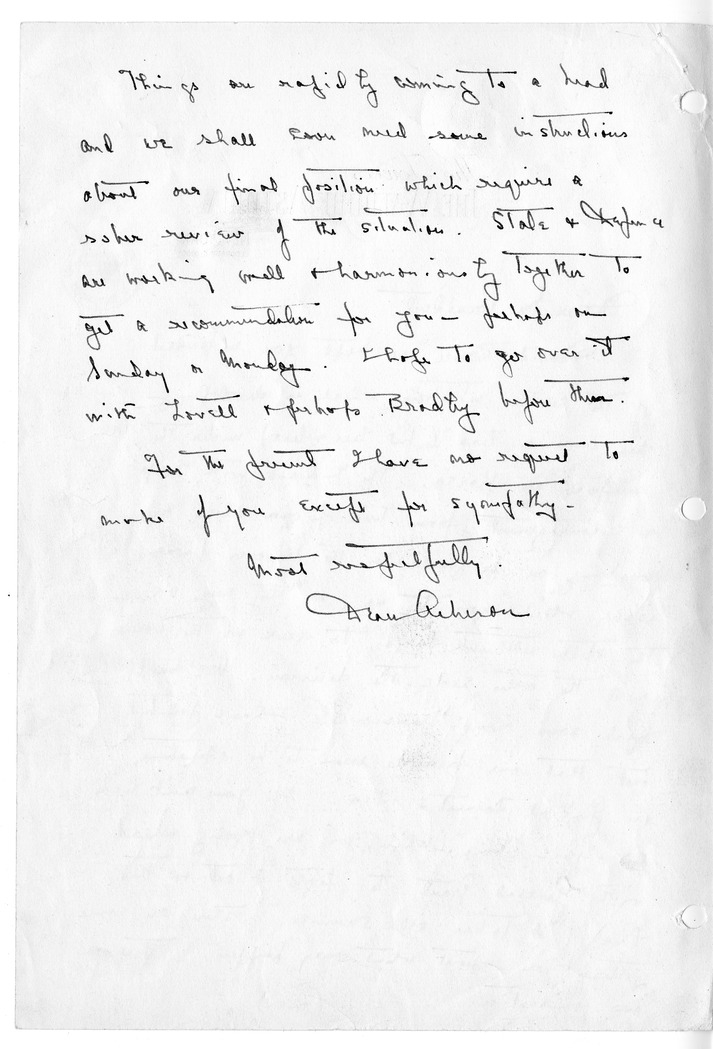 Things are rapidly coming to a head
and we shall soon need some instructions
about our final position which require a
sober review of the situation. State & Defense
are working well & harmoniously together to
get a recommendation for you — perhaps on
Sunday or Monday. I hope to go over it
with Lovett & perhaps Bradley before then.
For the present I have no request to
make of you except for sympathy —
Most respectfully.
Dean Acheson